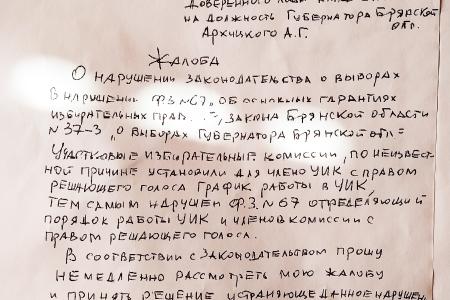 ДОВЕРЕННОГО ЛИЦА
НА ДОЛЖНОСТЬ ГУБЕРНАТОРА БРЯНСКОЙ
ОБЛ.
АРХИЦКОГО А.Г.
ЖАЛОБА
О НАРУШЕНИИ ЗАКОНОДАТЕЛЬСТВА О ВЫБОРАХ
В НАРУШЕНИИ Ф.З. №67 „ОБ ОСНОВНЫХ ГАРАНТИЯХ
ИЗБИРАТЕЛЬНЫХ ПРАВ...", ЗАКОНА БРЯНСКОЙ ОБЛАСТИ
№37-З „О ВЫБОРАХ ГУБЕРНАТОРА БРЯНСКОЙ ОБЛ="
УЧАСТКОВЫЕ ИЗБИРАТЕЛЬНЫЕ КОМИССИИ, ПО НЕИЗВЕСТ-
НОЙ ПРИЧИНЕ УСТАНОВИЛИ ДЛЯ ЧЛЕНО УИК С ПРАВОМ
РЕШАЮЩЕГО ГОЛОСА ГРАФИК РАБОТЫ В УИК,
ТЕМ САМЫМ НАРУШЕН Ф.З. №67 ОПРЕДЕЛЯЮЩИЙ
ПОРЯДОК РАБОТЫ УИК И ЧЛЕНОВ КОМИССИИ С
ПРАВОМ РЕШАЮЩЕГО ГОЛОСА.
В СООТВЕТСТВИИ С ЗАКОНОДАТЕЛЬСТВОМ ПРОШУ
НЕМЕДЛЕННО РАССМОТРЕТЬ МОЮ ЖАЛОБУ
И ПРИНЯТЬ РЕШЕНИЕ УСТРАНЯЮЩЕЕ ДАННОЕ НАРУШЕН